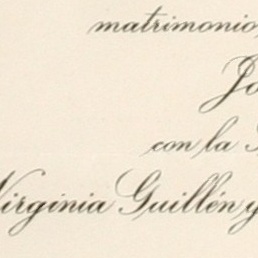 matrimonio,
con la
Virginia Guillén y